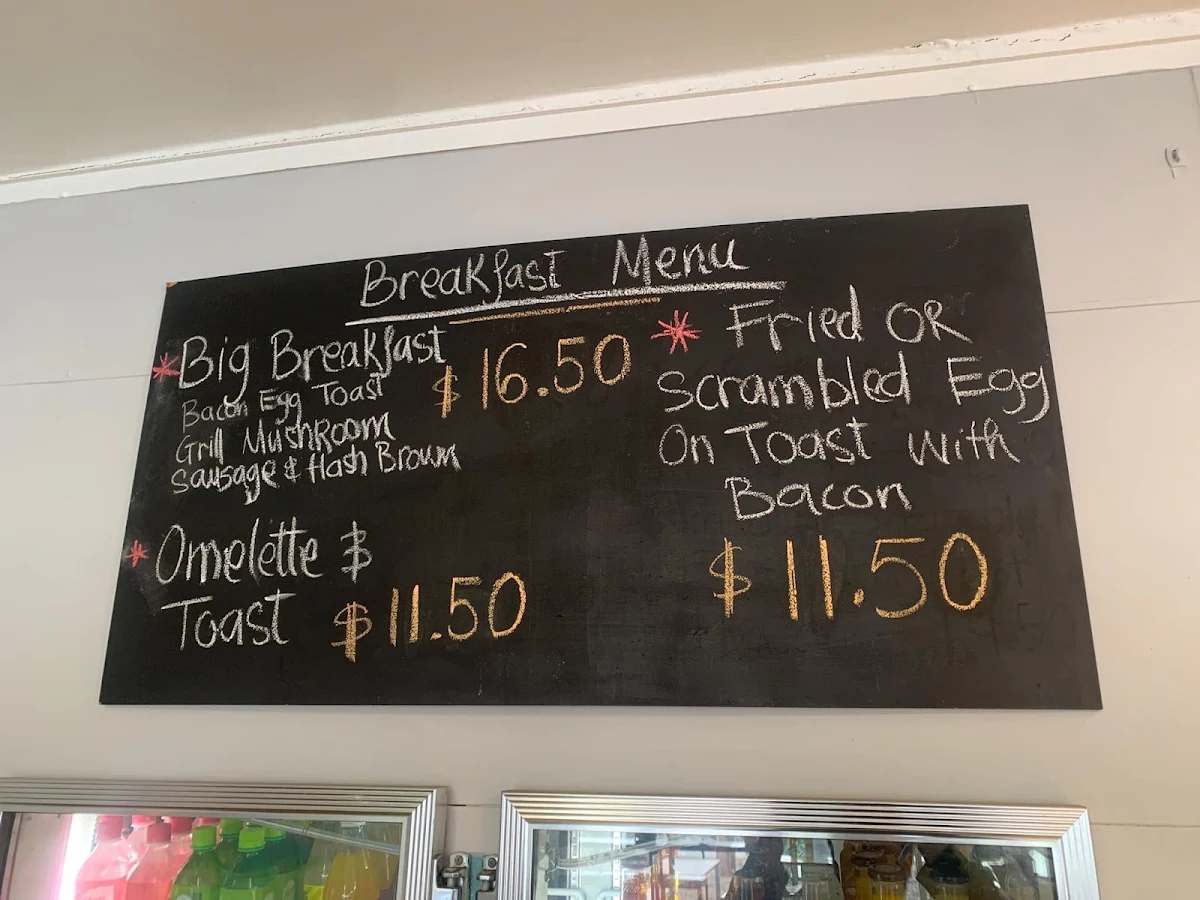 Breakfast Menu
*Big Breakfast
$16.50
Bacon Egg Toast
Grill MushRoom
Sausage & Hash Brown
*Omelette &
Toast $11.50
* Fried OR
Scrambled Egg
On Toast with
Bacon
$11.50